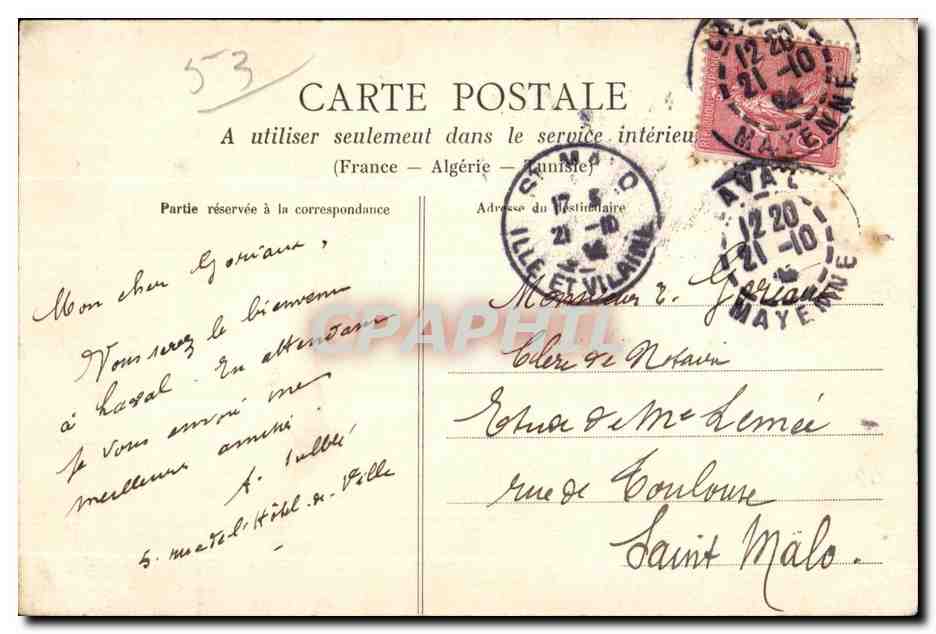 53
CARTE POSTALE
A utiliser seulement dans le service intérieur
(France — Algérie — Tunisie)
Partie réservée à la correspondance
Adresse du destinataire
12 20
21 -10
MAYENNE
ST MALO
17
21 -10
ILLE ET VILAINE
LAVAL
12 20
21 -10
MAYENNE
CPAPHIL
Mon cher Goriaux,
Vous serez le bienvenu
à Laval. En attendant
je vous envoie mes
meilleures amitiés
A.
5. rue de l'Hôtel-de-Ville
Monsieur E. Goriaux
Clerc de Notaire
Etude de Me Lemée
rue de Toulouse
Saint Malo.